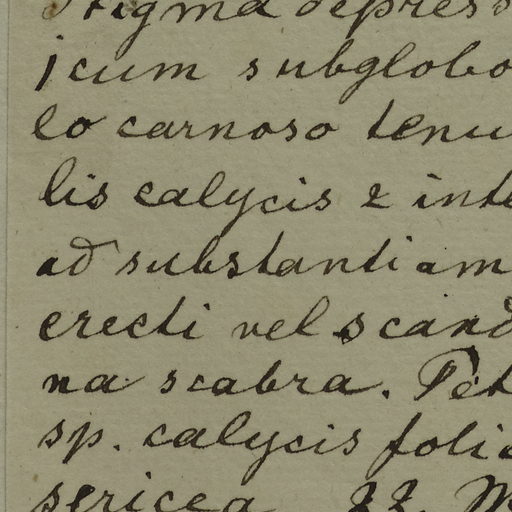 Stigma depress
icum subglobo
eo carnoso tenu
lis calycis 2 inte
ad substantiam
erecti vel scand
na scabra. Pet
sp. calycis foli
sericea 22. M